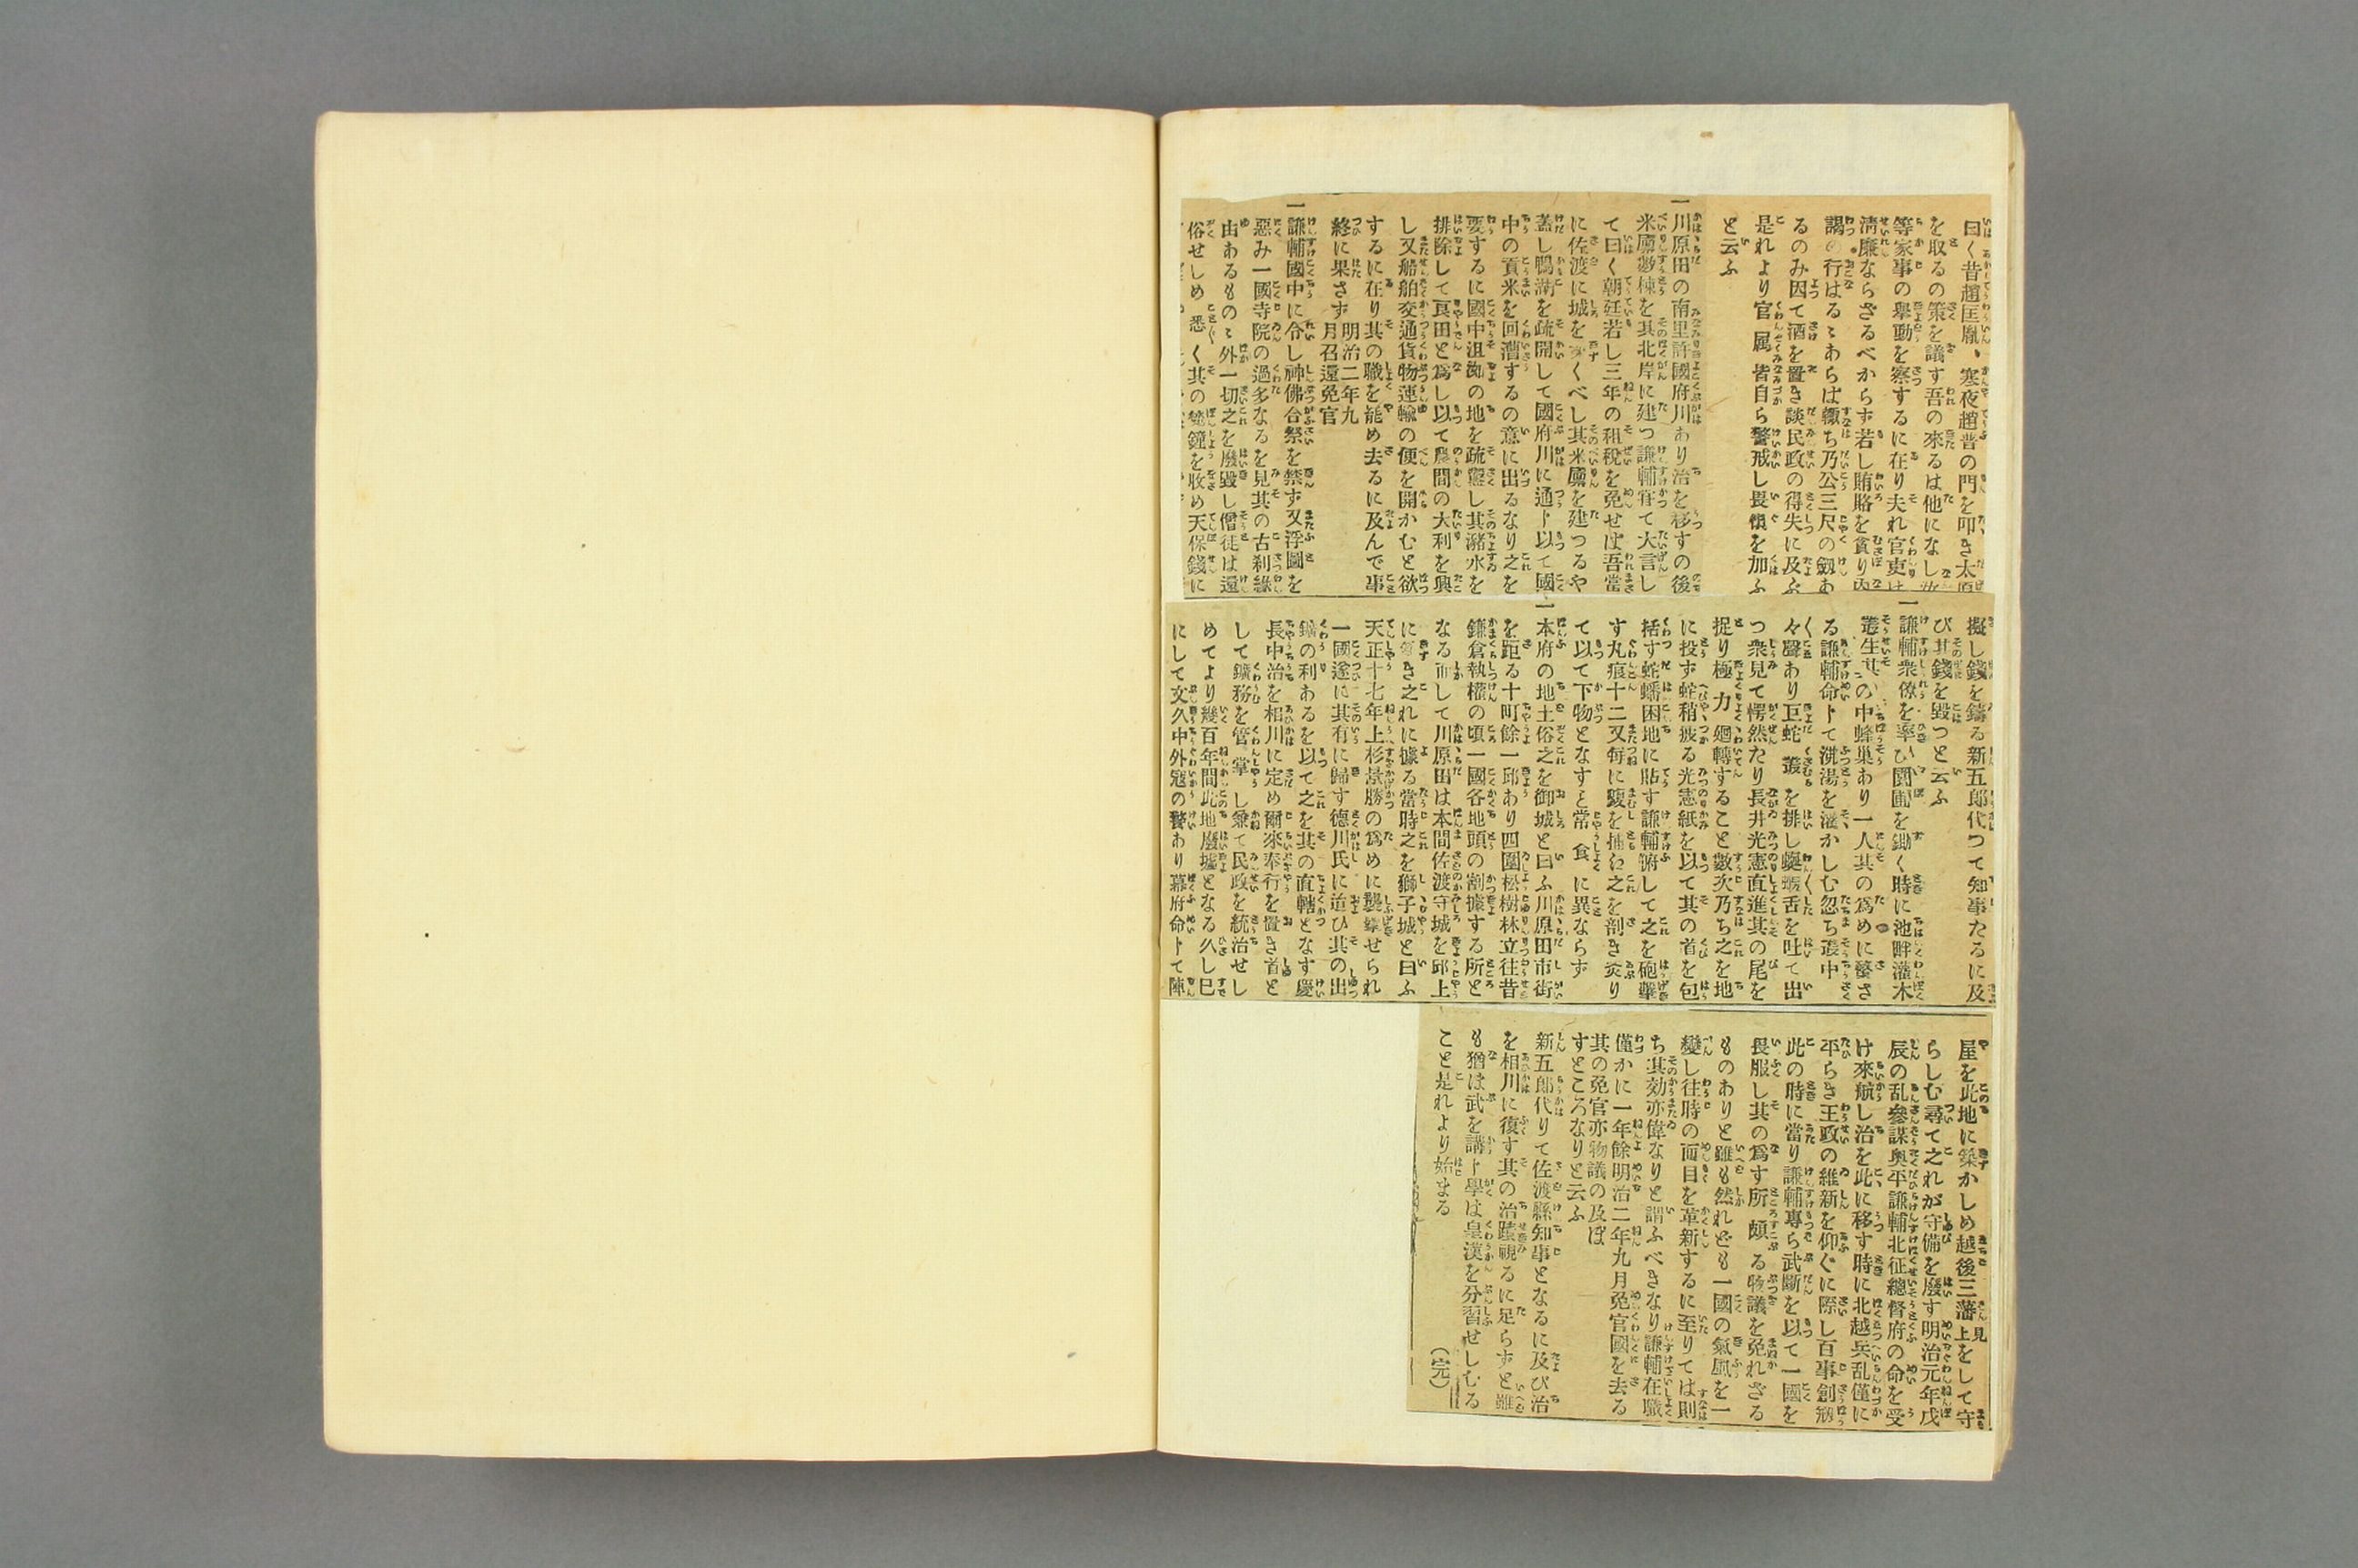 曰く昔趙匡胤、寒夜趙普の門を叩き太原
を取るの策を議す吾の來るは他になし
等家事の擧動を察するに在り夫れ官吏は
淸廉ならざるべからず若し賄賂を貪り
謁の行はるゝあらは輙ち乃公三尺の劔あ
るのみ因て酒を置き談民政の得失に及ぶ
是れより官属皆自ら警戒し畏愼を加ふ
と云ふ
一川原田の南里許國府川あり治を移すの後
米廩數棟を其北岸に建つ謙輔甞て大言し
て曰く朝廷若し三年の租稅を免せは吾當
に佐渡に城をきづくべし其米廩を建つるや
蓋し鴨湖を疏開して國府川に通ト以て國
中の貢米を回漕するの意に出るなり之を
要するに國中沮洳の地を疏鑿し其瀦水を
排除して良田と爲し以て農間の大利を興
し又船舶交通貨物運輸の便を開かむと欲
するに在り其の職を能め去るに及んで事
終に果さず明治二年九
月召還免官
一謙輔國中に令し神佛合祭を禁す又浮圖を
惡み一國寺院の過多なるを見其の古刹緣
由あるものゝ外一切之を廢毀し僧徒は還
俗せしめ悉く其の梵鐘を收め天保錢に
擬し錢を鑄る新五郎代つて知事たるに及
び其錢を毀つと云ふ
一謙輔衆僚を率ひ園圃を鋤く時に池畔灌木
叢生其の中蜂巢あり一人其の爲めに螫さ
る謙輔命トて沸湯を灌かしむ忽ち叢中
々聲あり巨蛇叢を排し蜿蜒舌を吐て出
つ衆見て愕然たり長井光憲直進其の尾を
捉り極力廻轉すること數次乃ち之を地
に投す蛇稍疲る光憲紙を以て其の首を包
括す蛇蟠困地に貼す謙輔俯して之を砲擊
す丸痕十二又每に蝮を捕ね之を剖き炙り
て以て下物となすと常食に異ならず
一本府の地土俗之を御城と曰ふ川原田市街
を距る十町餘一邱あり四圍松樹林立往昔
鎌倉執權の頃一國各地頭の割據する所と
なる而して川原田は本間佐渡守城を邱上
に築き之れに據る當時之を獅子城と曰ふ
天正十七年上杉景勝の爲めに襲擊せられ
一國遂に其有に歸す德川氏に迨ひ其の出
鑛の利あるを以て之を其の直轄となす慶
長中治を相川に定め爾來奉行を置き首と
して鑛務を管掌し兼て民政を統治せし
めてより幾百年間此地廢墟となる久し巳
にして文久中外寇の警あり幕府命トて陣
屋を此地に築かしめ越後三藩見上をして守
らしむ尋て之れが守備を廢す明治元年戊
辰の乱參謀奥平謙輔北征總督府の命を受
け來航し治を此に移す時に北越兵乱僅に
平らき王政の維新を仰ぐに際し百事創剏
此の時に當り謙輔專ら武斷を以て一國を
畏服し其の爲す所頗る物議を免れざる
ものありと雖も然れども一國の氣風を一
變し往時の面目を革新するに至りては則
ち其効亦偉なりと謂ふべきなり謙輔在職
僅かに一年餘明治二年九月免官國を去る
其の免官亦物議の及ぼ
すところなりと云ふ
新五郎代りて佐渡縣知事となるに及び治
を相川に復す其の治蹟視るに足らずと雖
も猶は武を講ト學は皇漢を分習せしむる
こと是れより始まる
（完）